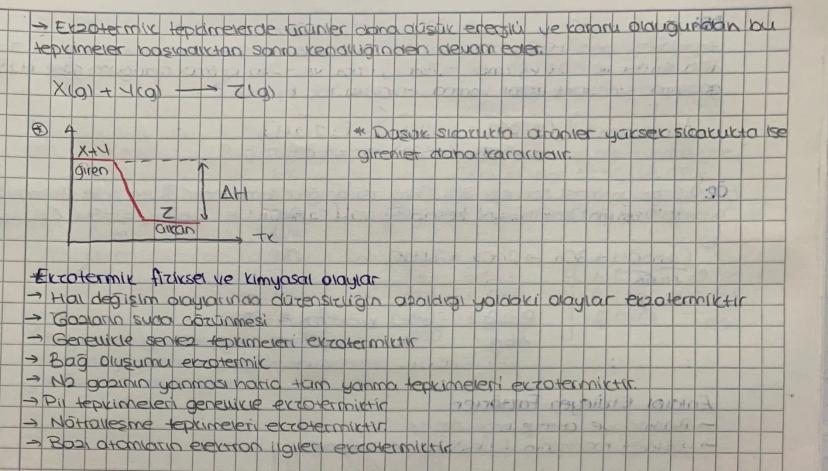 → Ekzotermik tepkimelerde ürünler daha düşük enerjili ve kararlı olduğundan bu
tepkimeler başladıktan sonra kendiliğinden devam eder.
X(g) + Y(g) → Z(g)
* Düşük sıcaklıkta ürünler yüksek sıcaklıkta ise
girenler daha kararlıdır.
X+Y
giren
ΔH
Z
çıkan
TK
Ekzotermik fiziksel ve kimyasal olaylar
→ Hal değişim olaylarında düzensizliğin azaldığı yöndeki olaylar ekzotermiktir
→ Gazların suda çözünmesi
→ Genellikle sentez tepkimeleri ekzotermiktir
→ Bağ oluşumu ekzotermik
→ N2 gazının yanması hariç tüm yanma tepkimeleri ekzotermiktir.
→ Pil tepkimeleri genellikle ekzotermiktir
→ Nötrleşme tepkimeleri ekzotermiktir
→ Bazı atomların elektron ilgileri ekzotermiktir